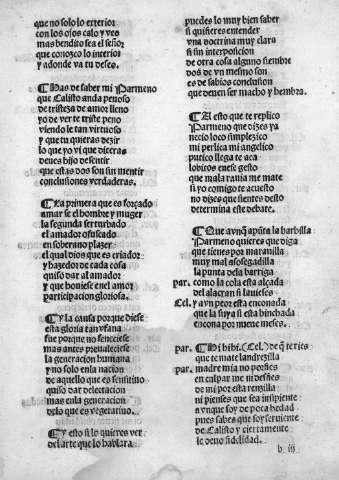 que no solo lo exterior
con los ojos calo y veo
mas bendito sea el señor
que conozco lo interior
y adonde va tu deseo.
Has de saber mi Parmeno
que Calisto anda penoso
de tristeza de amor lleno
yo de ver te triste peno
viendo le tan virtuoso
y tu que quieras dezir
lo que yo vi que dixeras
deues hijo de sentir
que estas dos son sin mentir
conclusiones verdaderas.
La primera que es forçado
amar se el hombre y muger
la segunda ser turbado
el amador ofuscado
en soberano plazer
el qual dios que es criador
y hazedor de cada cosa
quiso dar al amador
y que houiese en el amor
participacion gloriosa.
Y la causa porque diese
esta gloria tan vfana
fue porque no feneciese
mas antes preualeciese
la generacion humana
y no solo en la nacion
de aquello que es sensitiuo
quiso dar delectacion
mas en la generacion
de lo que es vegetatiuo.
Y esto si lo quieres ver
del arte que lo hablara
puedes lo muy bien saber
si quisieres entender
vna doctrina muy clara
si sin interposicion
de otra cosa alguno siembre
dos de vn mesmo son
es de sabios conclusion
que deuen ser macho y hembra.
Al esto que te replico
Parmeno que dizes ya
necio loco simplezico
mi perlica mi angelico
putico llega te aca
lobitos en ese gesto
que mala rauia me mate
si yo comigo te acuesto
no dizes que sientes desto
determina este debate.
Que aun q̃ apũta la barbilla
Parmeno quieres que diga
que tienes por marauilla
muy mal asosegadilla
la punta dela barriga
par. como la cola esta alçada
del alacran si lauieses
Cel. y aun peor esta enconada
que la suya si esta hinchada
encona por nueue meses.
par. Hi hi hi. Cel. de q̃ te ries
que te mate landrezilla
par. madre mia no porfies
en culpar me ni desuies
de mi por esta renzilla
ni pienses que sea insipiente
avnque soy de poca hedad
pues sabes que soy seruiente
de Calisto y ciertamente
le deuo fidelidad.
b. iij